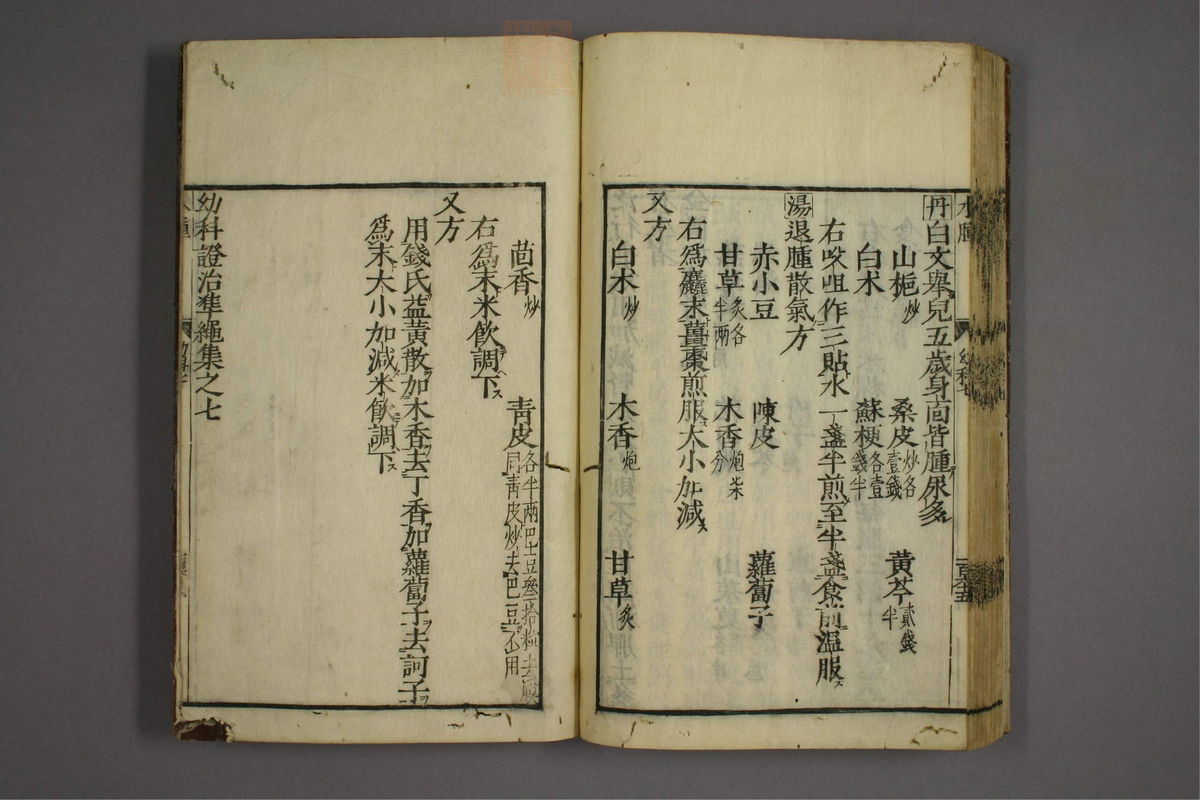 丹白文舉兒五歲身面皆腫尿多
山梔炒 桑皮炒各壹錢 黃芩貳錢半
白朮 蘇梗各壹錢半
右㕮咀作三貼水一盞半煎至半盞食前溫服
湯退腫散氣方
赤小豆 陳皮 蘿蔔子
甘草炙各半兩 木香炮柒分
右爲麤末薑棗煎服大小加減
又方
白朮炒 木香炮 甘草炙
茴香炒 青皮各半兩巴豆叁拾粒去殼同青皮炒去巴豆不用
右爲末米飲調下
又方
用錢氏益黃散加木香去丁香加蘿蔔子去訶子
爲末大小加減米飲調下
幼科證治準繩集之七